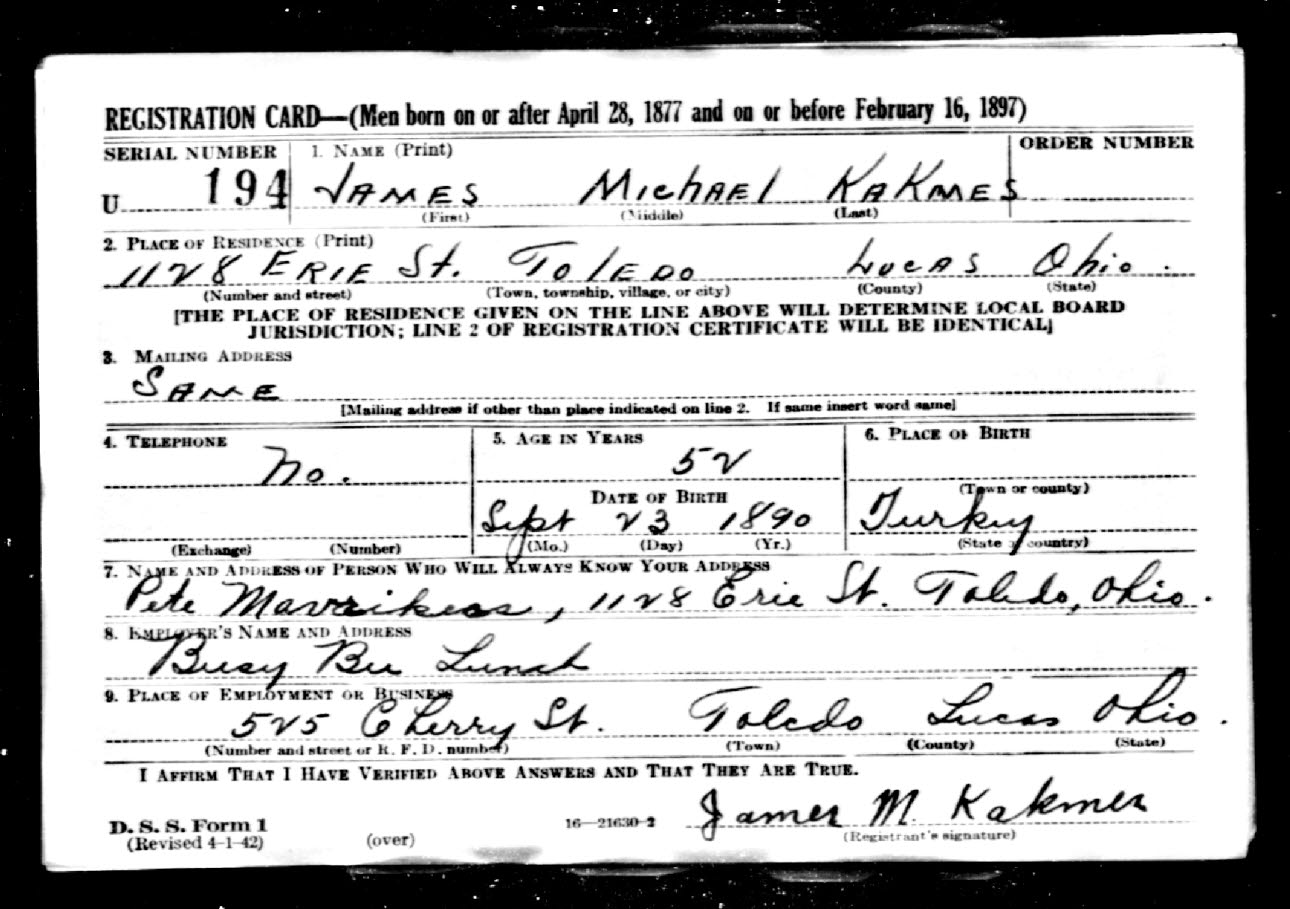 REGISTRATION CARD—(Men born on or after April 28, 1877 and on or before February 16, 1897)
SERIAL NUMBER 1. NAME (Print) ORDER NUMBER
U 194 JAMES MIChAEl KAKMES
(First) (Middle) (Last)
2. PLACE OF RESIDENCE (Print)
1128 ERIE St. TOlEDO LUCAS Ohio.
(Number and street) (Town, township, village, or city) (County) (State)
[THE PLACE OF RESIDENCE GIVEN ON THE LINE ABOVE WILL DETERMINE LOCAL BOARD
JURISDICTION; LINE 2 OF REGISTRATION CERTIFICATE WILL BE IDENTICAL]
3. MAILING ADDRESS
SAME
[Mailing address if other than place indicated on line 2. If same insert word same]
4. TELEPHONE 5. AGE IN YEARS 6. PLACE OF BIRTH
No. 52
DATE OF BIRTH (Town or county)
Sept 23 1890 Turkey
(Exchange) (Number) (Mo.) (Day) (Yr.) (State or country)
7. NAME AND ADDRESS OF PERSON WHO WILL ALWAYS KNOW YOUR ADDRESS
Pete Mavrikeas, 1128 Erie St. Toledo, Ohio.
8. EMPLOYER'S NAME AND ADDRESS
Busy Bee Lunch
9. PLACE OF EMPLOYMENT OR BUSINESS
525 Cherry St. Toledo Lucas Ohio.
(Number and street or R. F. D. number) (Town) (County) (State)
I AFFIRM THAT I HAVE VERIFIED ABOVE ANSWERS AND THAT THEY ARE TRUE.
James M. Kakmes
D. S. S. Form 1 16—21630-2 (Registrant's signature)
(Revised 4-1-42) (over)